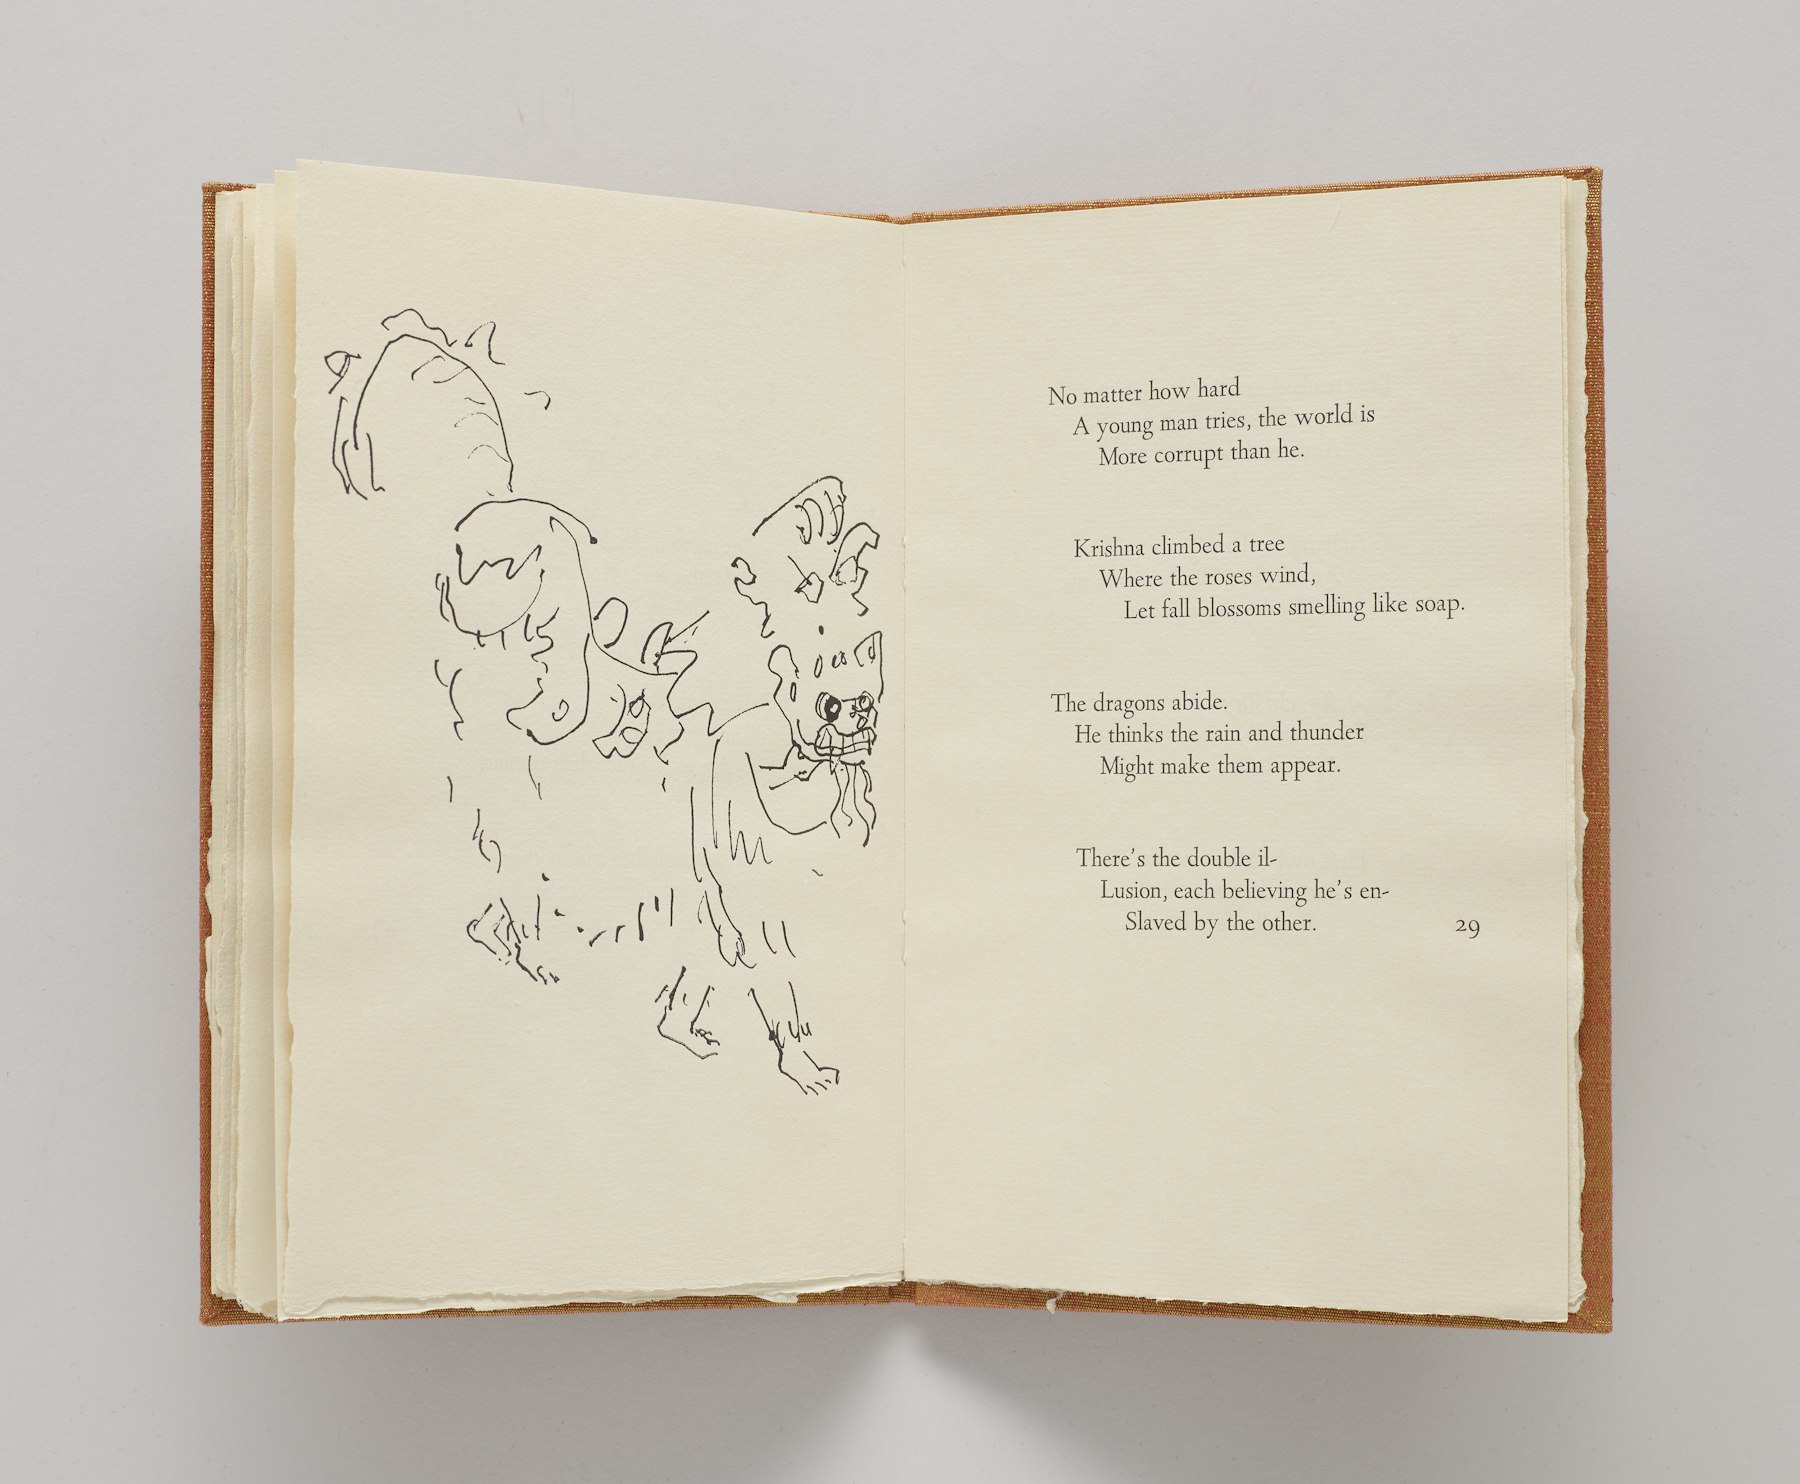 No matter how hard
A young man tries, the world is
More corrupt than he.
Krishna climbed a tree
Where the roses wind,
Let fall blossoms smelling like soap.
The dragons abide.
He thinks the rain and thunder
Might make them appear.
There's the double il-
Lusion, each believing he's en-
Slaved by the other.
29